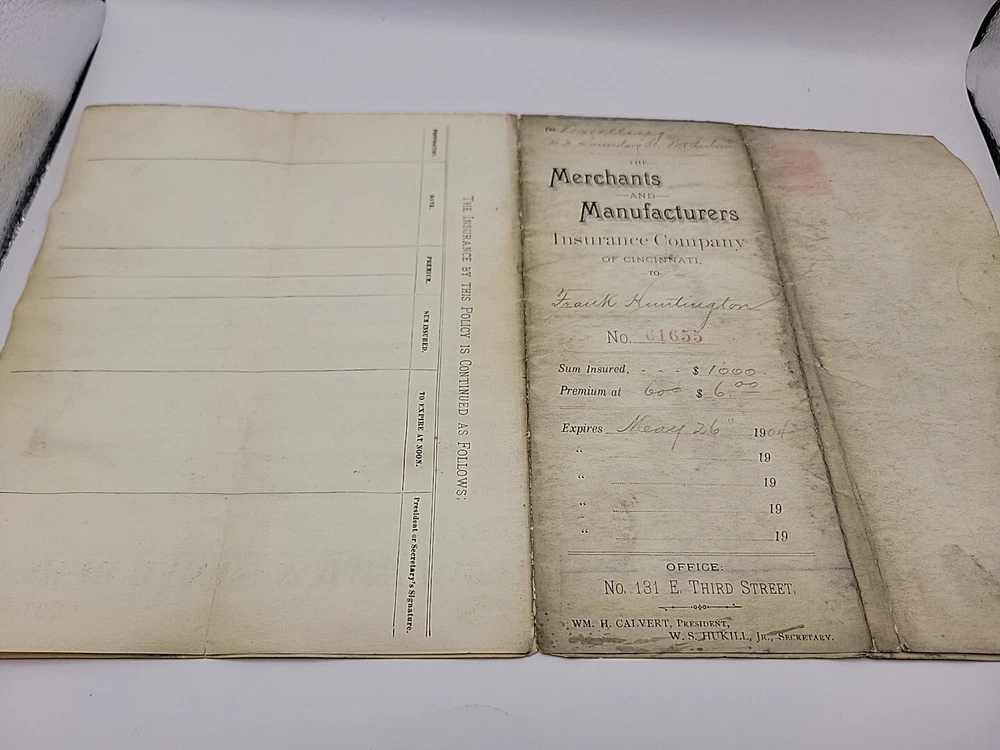 THE INSURANCE BY THIS POLICY IS CONTINUED AS FOLLOWS:
PREMIUM.
DATE.
PREMIUM.
SUM INSURED.
TO EXPIRE AT NOON.
President or Secretary's Signature.
On Dwelling
THE
Merchants
AND
Manufacturers
Insurance Company
OF CINCINNATI,
TO
Frank Huntington
No. 61655
Sum Insured, - - - $ 1000.
Premium at 60¢ $ 6.00
Expires May 26" 1904
" 19
" 19
" 19
" 19
OFFICE:
No. 131 E. THIRD STREET.
WM. H. CALVERT, PRESIDENT,
W. S. HUKILL, JR., SECRETARY.